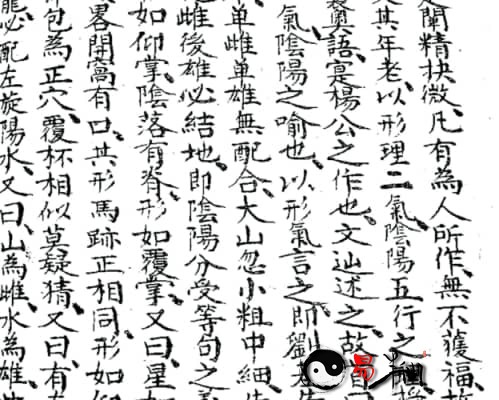 闡精抉微、凡有為人所作、無不獲福、故
其年老、以形理二氣陰陽五行之理
語、寔楊公之作也、文辿述之、故
氣陰陽之喻也、以形氣言之、即劉
单雌单雄無配合、大山忽小粗中細
雌後雄必結地、即陰陽分受等句之義
如仰掌、陰落有脊、形如覆掌、又曰、星如
畧開窩有口、其形馬跡正相同、形如仰
包為正穴、覆杯相似莫疑猜、又曰、有
龍必配左旋陽水、又曰、山為雌、水為雄
易